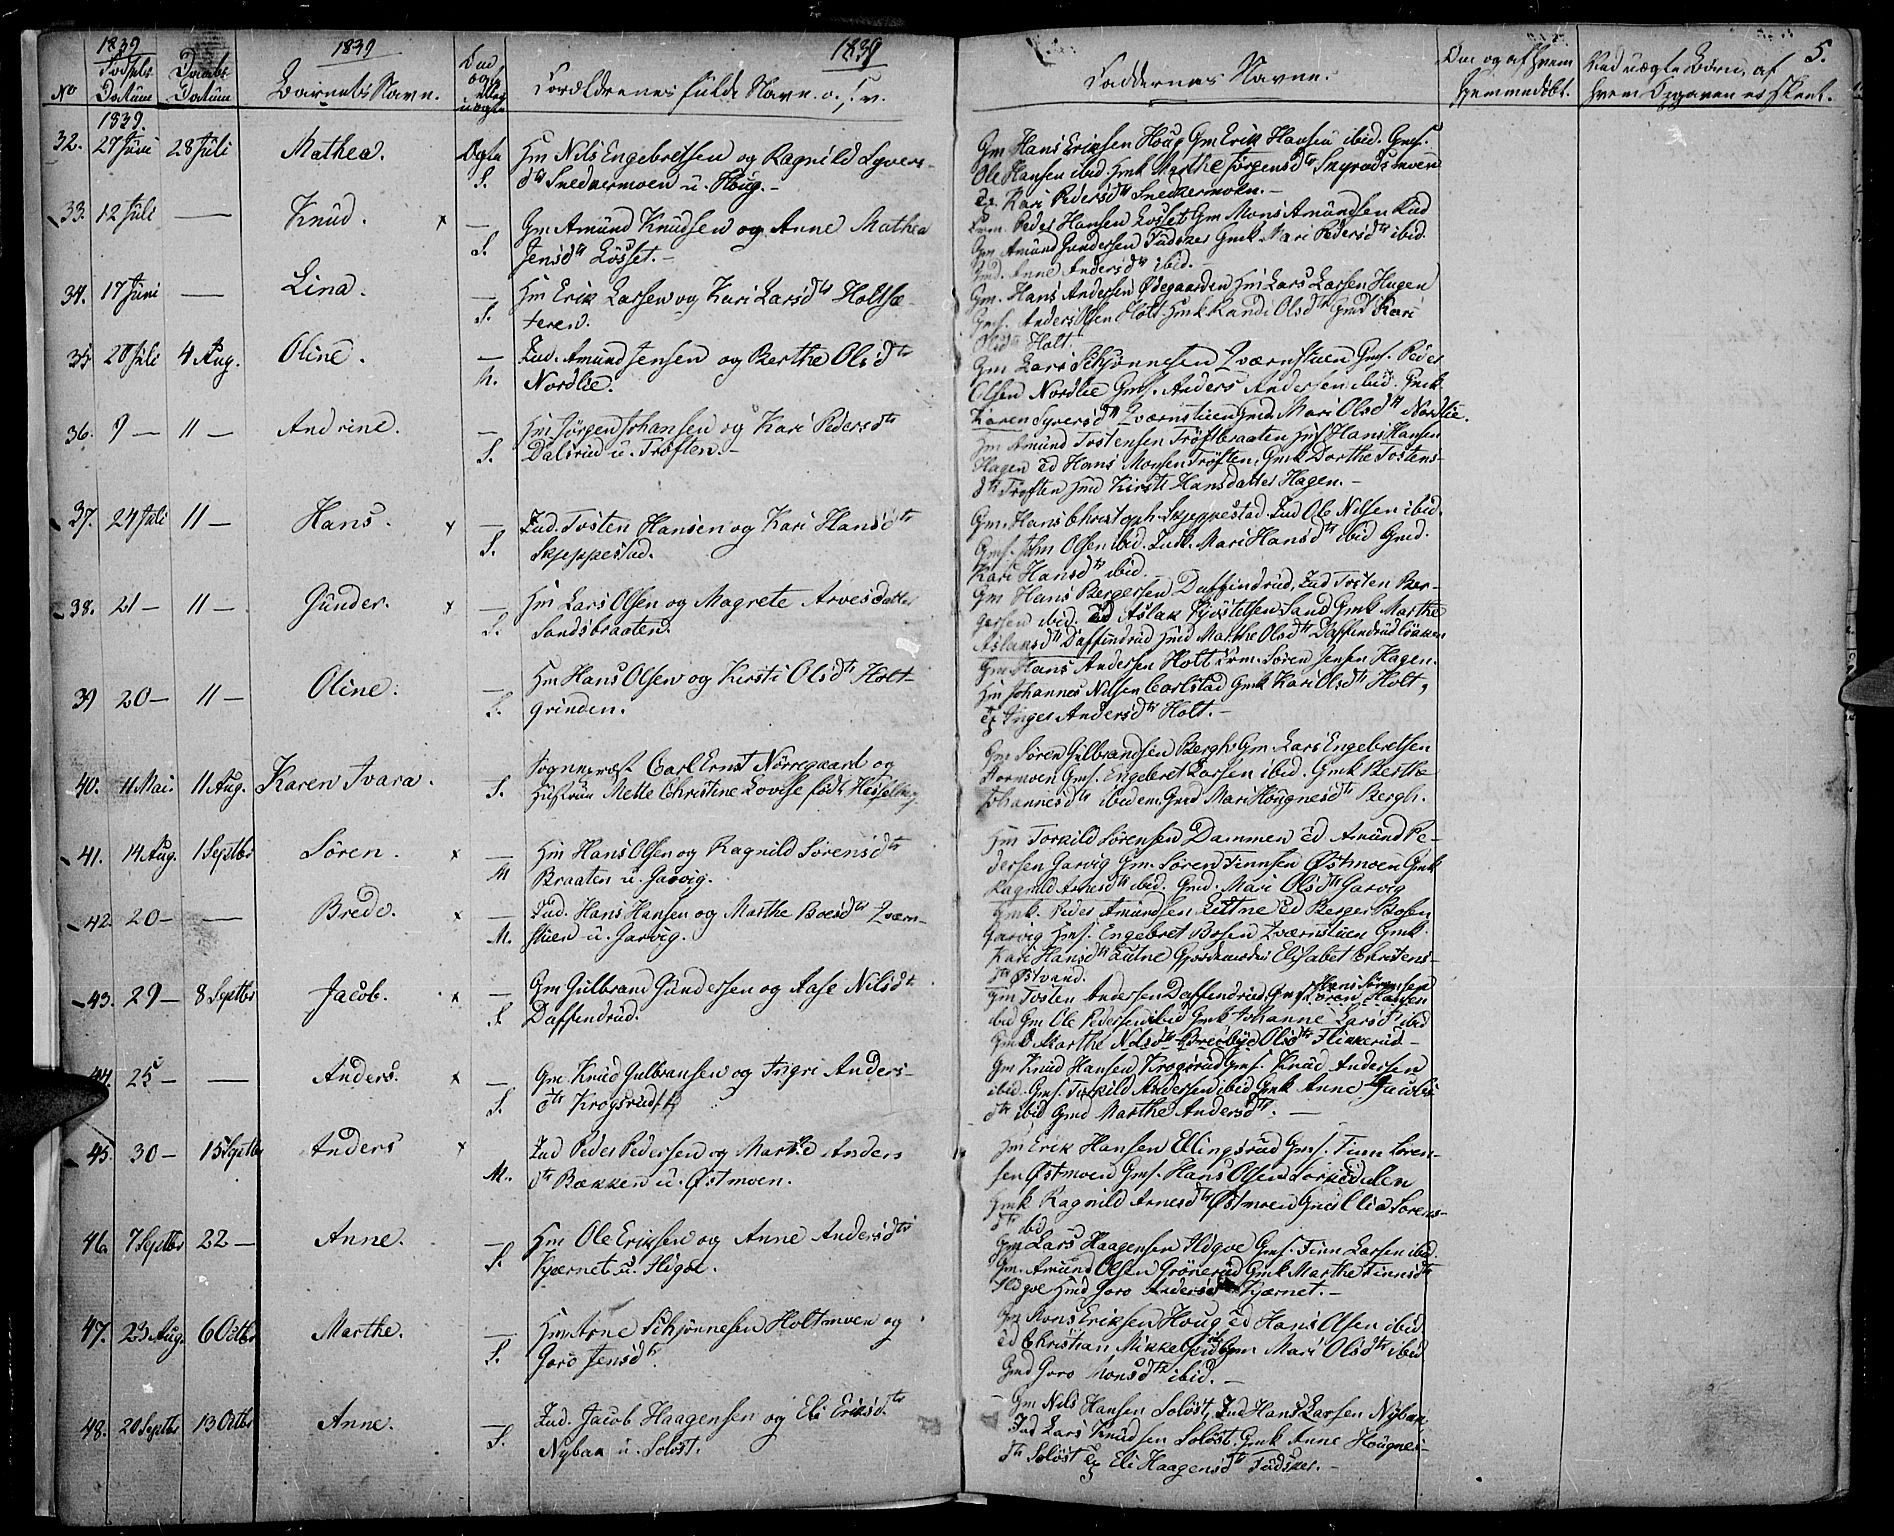 1839 1839 1839
No Fødsels Datum Daabs Datum Barnets Navn. Om ægte eller uægte Forældrenes fulde Navn o. s. v. Faddernes Navne. Om og af Hvem hjemmedøbt. Ved uægte Børn, af hvem Opgaven er skeet. 5.
1839.
32. 27 Juni 28 Juli Mathea. Ægte Hm Nils Engebretsen og Ragnild Syvers-
S. dtr Snekkermoen u. Houg.-
Gm Hans Eriksen Houg Gm Erik Hansen ibid. Gms.
Ole Hansen ibid Hmk Marthe Jörgensdtr
Kari Pedersdtr Snekkermoen.-
33. 12 Juli — Knud. x — Gm Amund Knudsen og Anne Mathea
S. Jensdtr Lösset.-
Peder Hansen Losset Gm Mons Amundsen
Gm Amund Gundersen Gmk Mari Pedersdtr ibid.
Gmd. Anne Andersdtr ibid.-
34. 17 Juni — Lina. — Hm Erik Larsen og Kari Larsdtr Holtsæ-
S. teren.
Gm. Hans Andersen Ödegaarden Hm Lars Larsen Hagen
Gms. Anders Olsen Holt Hmk Randi Olsdtr Gmd Kari
Olsdtr Holt
35 28 Juli 4 Aug. Oline. — Ind. Amund Jensen og Berthe Olsdtr
N. Nordlie.
Gm Lars Schjönnesen Qværnstuen Gms. Peder
Olsen Nordlie Gms. Anders Andersen ibid. Gmk
Karen Syversdtr Qværnstuen Gmd. Mari Olsdtr Nordlie.
36. 9 — 11 — Andrine. — Hm Jörgen Johansen og Kari Pedersdtr
S. Dalsrud u. Tröften.-
Hm Amund Tostensen Tröftbraaten Hms Hans Hansen
Hagen Hans Monsen Tröften, Gmk Dorthe Tostens-
dtr Tröften Hmd Kirsti Hansdatter Hagen.-
37. 24 Juli 11 — Hans. x — Ind. Tosten Hansen og Kari Hansdtr
S. Skjeppestad.
Gm. Hans Christoph. Skjeppestad. Ind Ole Nilsen ibid.
Gms. John Olsen ibid. Indk. Mari Hansdtr ibid Gmd.
Kari Hansdtr ibid.
38. 21 — 11 — Gunder. x — Hm Lars Olsen og Magrete Arvesdatter
S. Sandsbraaten.
Gm Hans Bergersen Daffindrud, Ind Tosten Ber-
gersen ibid. Aslak Kjöstelsen Sand Gmk Marthe
Aslaksdtr Daffindrud Hmd Marthe Olsdtr Daffindrudlökken
39 20 — 11 — Oline. — Hm Hans Olsen og Kirsti Olsdtr Holt-
S. grinden.
Gm Hans Andersen Holt Sören Jensen Hagen.
Hm Johannes Nilsen Carlstad Gmk Kari Olsdtr Holt,
Inger Andersdtr Holt.-
40. 11 Mai 11 Aug. Karen Ivara. Sognepræst Carl Ernst Nörregaard og
S. Hustrue Mette Christine Lovise födt Hesselberg
Gm Sören Gulbrandsen Bergh Gm. Lars Engebretsen
Stormoen Gms. Engebret Larsen ibid. Gmk Berthe
Johannesdtr ibidem, Gmd Mari Hougnesdtr Bergh.
41. 14 Aug. 1 Septbr Sören. x — Hm Hans Olsen og Ragnild Sörensdtr
M Braaten u. Garvig.
Hm Torkild Sörensen Dammen Amund Pe-
dersen Garvig Gm. Sören Finnsen Östmoen Gmk
Ragnild Arnesdtr ibid. Gmd. Mari Olsdtr Garvig
42. 20 — — Brede. x — Ind. Hans Hansen og Marthe Boesdtr Qværn-
M. stuen u. Garvig.
Gmk. Peder Amundsen Berger Bosen
Garvig Hms. Engebret Bosen Qværnstuen Gmk.
Kari Hansdtr Elisabet Christens-
dtr Östvand.
43. 29 — 8 Septbr Jacob. x — Gm Gulbrand Gundersen og Aase Nilsdtr
S. Daffindrud.
Gm Tosten Andersen Daffindrud Gms Hans Sörensen
ibid Gm Ole Pedersen ibid Gmk Johanne Larsdtr ibid
Gmd Marthe Nilsdtr Olsdtr Flikkerud.-
44. 25 — — Anders. x — Gm Knud Gulbransen og Ingri Anders-
S. dtr Krogsrud.
Gm Knud Hansen Krogsrud Gms. Knud Andersen
ibid. Gms. Torkild Andersen ibid Gmk Anne Jacobs-
dtr ibid Gmd Marthe Andersdtr. —
45. 30 — 15 Septbr Anders x — Ind Peder Pedersen og Marthe Anders
M. dtr Bækken u. Östmoen.
Hm Erik Hansen Ellingsrud Gms. Finn Sören-
sen Östmoen Gms. Hans Olsen
Gmk Ragnild Arnesdtr Östmoen Gmd Sörens-
dtr ibid
46. 7 Septbr 22 — Anne. — Hm Ole Eriksen og Anne Andersdtr
S. Kjærnet u. Higve.
Gm Lars Haagensen Gms. Finn Larsen ibid.
Gm. Amund Olsen Grönerud Gmk Marthe Finnsdtr
Hmd Goro Andersdtr Kjærnet.-
47. 23 Aug. 6 Octbr Marthe. — Hm Arne Schjönnesen Holtmoen og
S. Goro Jensdtr.
Gm Mons Eriksen Houg Hans Olsen ibid
Christian Mikkelsen Mari Olsdtr ibid
Gmd Goro Monsdtr ibid.-
48. 20 Septbr 13 Octbr Anne. — Ind. Jacob Haagensen og Eli Eriksdtr
S. Nybak u. Solöst.
Gm Nils Hansen Solöst, Ind Hans Larsen Nybak,
Ind Lars Knudsen Solöst. Gmk Anne Hougnes-
dtr Solöst Eli Haagensdtr